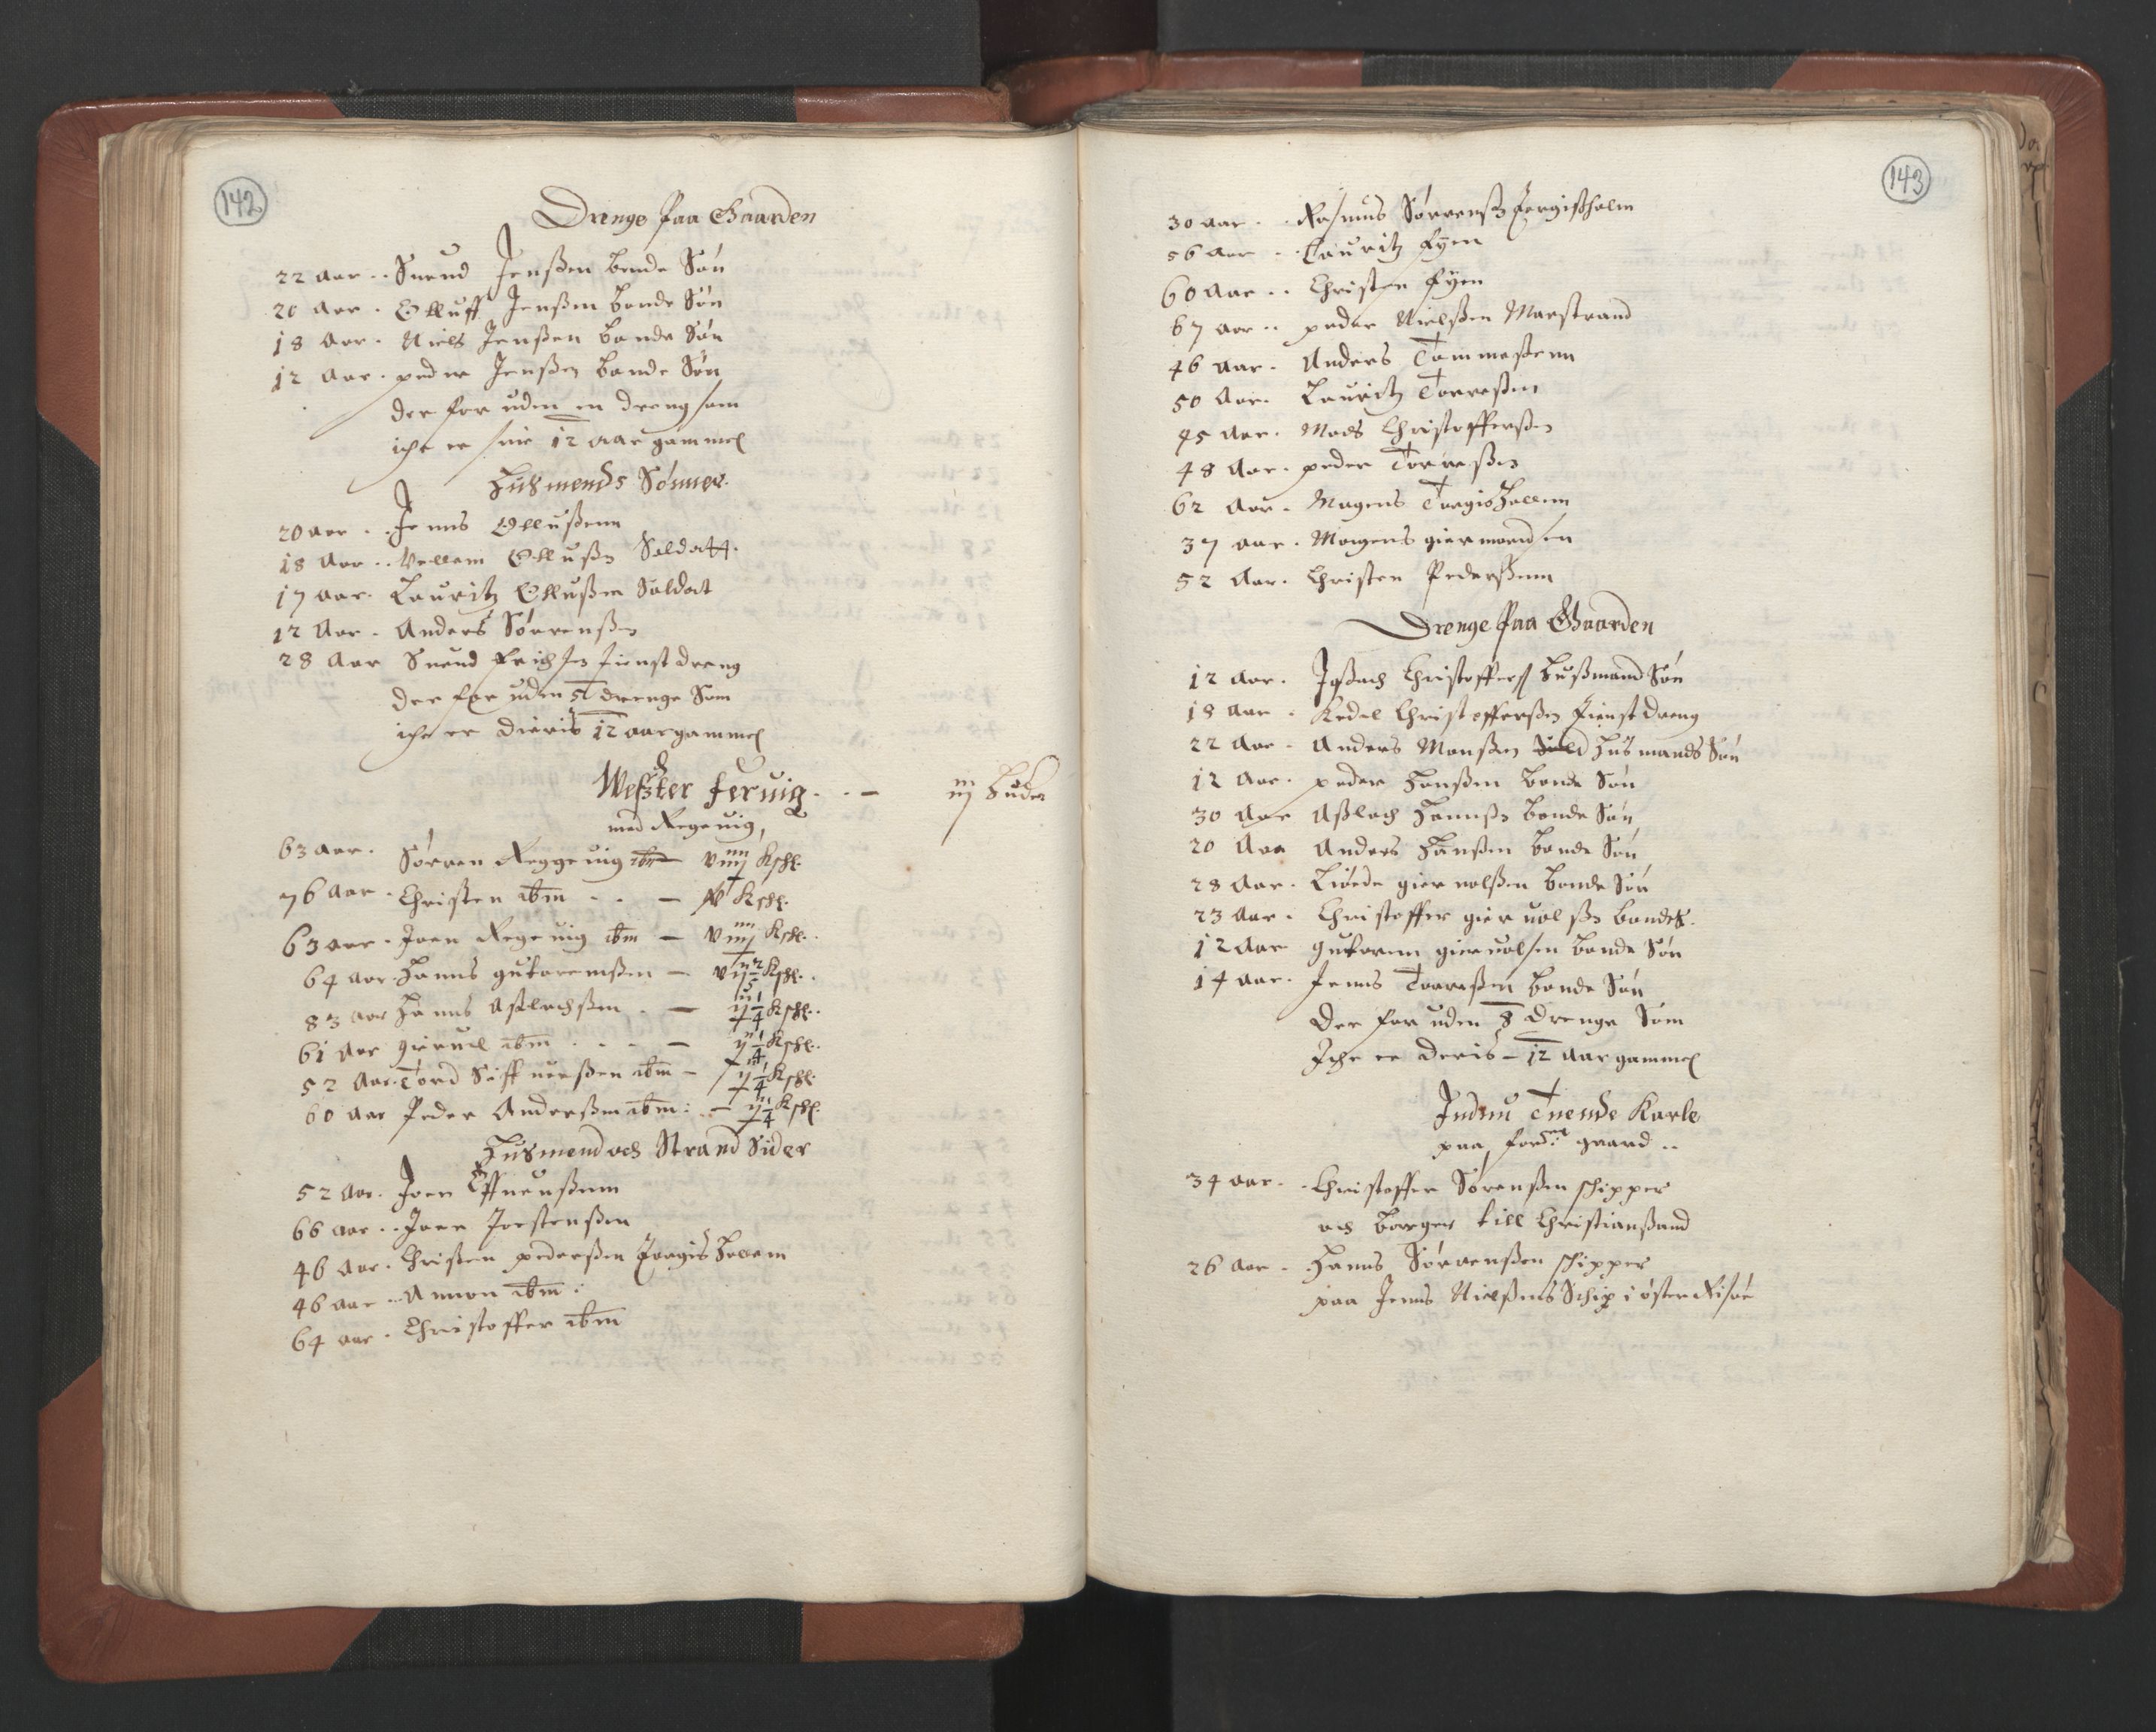 142
Drenge paa Gaarden
22 aar .. Suend Jenßen bonde Søn
20 aar . Olluff Jenßen bonde Søn
18 aar . Niels Jenßen bonde Søn
12 aar . peder Jenßen bonde Søn
der for uden en dreng som
iche er 12 aar gammel
Husmends Sønner.
20 aar . Jenns Ollußenn
18 aar .. Vellom Ollußen Saldatt.
17 aar . Lauritz Ollußen Saldat
12 aar . Anders Sørrenßen
28 aar Suend Erichsen tienst dreng
der for uden 5 drenge Som
iche er 12 aar gammel
Weßter feruig . . — iij Huder
med Regeuig,
63 aar . Sørren Reggeuig — viiij Kschl.
76 aar . Christen ibm . . — Kschl.
63 aar . Joen Regeuig ibm — viiij Kschl.
64 aar . Hanns gutoremßen — Kschl.
83 aar Hanns Aßlachßen . — Kschl.
61 aar gieruel ibm . . . — Kschl.
52 aar . Tord Siffuerßen ibm — Kschl.
60 aar Peder Anderßen ibm : — Kschl.
Husmend och Strand Sider
52 aar . Joen Effuenßenn
66 aar .. Joen Jorstenßen
46 aar . Christen pederßen Torgis Hollem
46 aar .. Amon ibm :
64 aar . Christoffer ibm
143
30 aar . . Rasmus Sørrenßen Torgißholm
56 aar . . Lauritz fyen
60 aar . . Christen fyen
67 aar .. peder Nielßen Marstrand
46 aar . Anders Tommeßenn
50 aar . Lauritz Torreßen
45 aar . Mads Christofferßen
48 aar . peder Torreßen
62 aar . Mogens Torgis Hollenn
37 aar . Mogens giermondsen
52 aar . Christen Pederßenn
Drenge paa Gaarden
12 aar . Jsßach Christofferß Hußmand Søn
18 aar . Kedel Christofferßen tienst dreng
22 aar . Anders Monßen Husmands Søn
12 aar . peder Hanßen bonde Søn
30 aar Aßlach Hannßen bonde Søn
20 aar Anders Hanßen bonde Søn
28 aar . Liøede gieruolßen bonde Søn
23 aar . Christoffer gieruolßen bondes.
12 aar gutorm gieruolsen bonde Søn
14 aar . Jenns Torreßen bonde Søn
der for uden 8 drenge Som
Iche er deris 12 aar gammel
Indnu Tuende Karle
paa forne gaard ..
34 aar . . Christoffer Sørenßen schipper
och borger till Christianßand
26 aar . Hanns Sørrenßen schipper
paa Jenns Nielßens Schip i øster Risøe